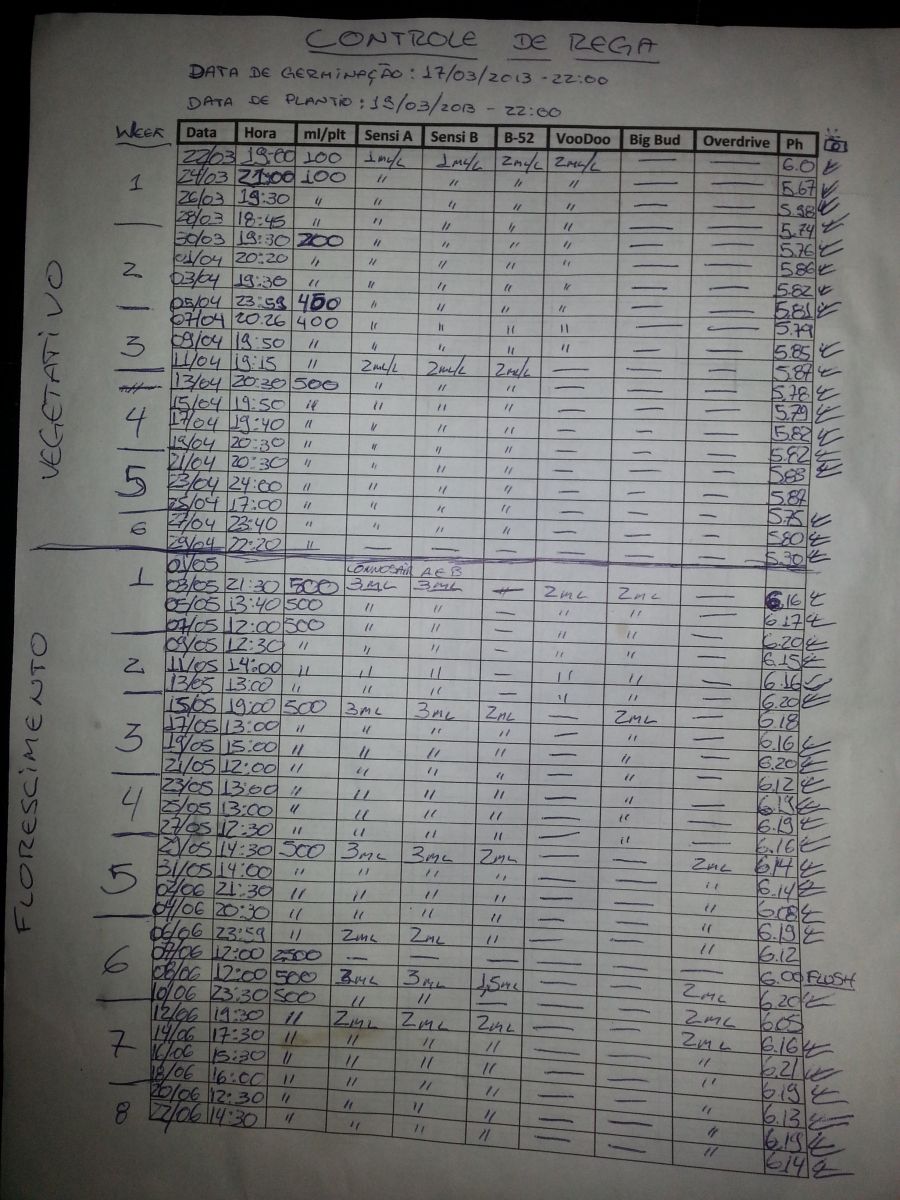 CONTROLE DE REGA
DATA DE GERMINAÇÃO: 17/03/2013 - 22:00
DATA DE PLANTIO: 19/03/2013 - 22:00
WEEK Data Hora ml/plt Sensi A Sensi B B-52 VooDoo Big Bud Overdrive Ph
VEGETATIVO
1
22/03 19:00 100 1ml/L 1ml/L 2ml/L 2ml/L — — 6.0
24/03 21:00 100 " " " " — — 5.67
26/03 19:30 " " " " " — — 5.98
28/03 18:45 " " " " " — — 5.74
2
30/03 19:30 200 " " " " — — 5.76
01/04 20:20 " " " " " — — 5.86
03/04 19:30 " " " " " — — 5.82
05/04 23:59 400 " " " " — — 5.81
3
07/04 20:26 400 " " " " — — 5.79
09/04 19:50 " " " " " — — 5.85
11/04 19:15 " 2ml/L 2ml/L 2ml/L — — — 5.87
13/04 20:30 500 " " " — — — 5.78
4
15/04 19:50 " " " " — — — 5.79
17/04 19:40 " " " " — — — 5.82
19/04 20:30 " " " " — — — 5.82
5
21/04 20:30 " " " " — — — 5.83
23/04 24:00 " " " " — — — 5.87
25/04 17:00 " " " " — — — 5.75
6
27/04 23:40 " " " " — — — 5.80
29/04 22:20 " — — — — — — 5.30
FLORESCIMENTO
1
01/05 A E B
03/05 21:30 500 3ml 3ml 2ml 2ml — 6.16
05/05 13:40 500 " " — " " — 6.17
07/05 12:00 500 " " — " " — 6.20
2
09/05 12:30 " " " — " " — 6.15
11/05 14:00 " " " — " " — 6.16
13/05 13:00 " " " — " " — 6.20
3
15/05 19:00 500 3ml 3ml 2ml — 2ml — 6.18
17/05 13:00 " " " " — " — 6.16
19/05 15:00 " " " " — " — 6.20
21/05 12:00 " " " " — " — 6.12
4
23/05 13:00 " " " " — " — 6.19
25/05 13:00 " " " " — " — 6.19
27/05 12:30 " " " " — " — 6.16
5
29/05 14:30 500 3ml 3ml 2ml — — 2ml 6.14
31/05 14:00 " " " " — — " 6.14
02/06 21:30 " " " " — — " 6.08
04/06 20:30 " " " " — — " 6.19
6
06/06 23:59 " 2ml 2ml " — — " 6.12
07/06 12:00 2500 — — — — — — 6.00 FLUSH
08/06 12:00 500 3ml 3ml 1,5ml — — 2ml 6.20
10/06 23:30 500 " " — — — 2ml 6.05
7
12/06 19:30 " 2ml 2ml 2ml — — 2ml 6.16
14/06 17:30 " " " " — — " 6.21
16/06 15:30 " " " " — — " 6.19
18/06 16:00 " " " " — — " 6.13
8
20/06 12:30 " " " " — — " 6.19
22/06 14:30 " " " " — — " 6.14